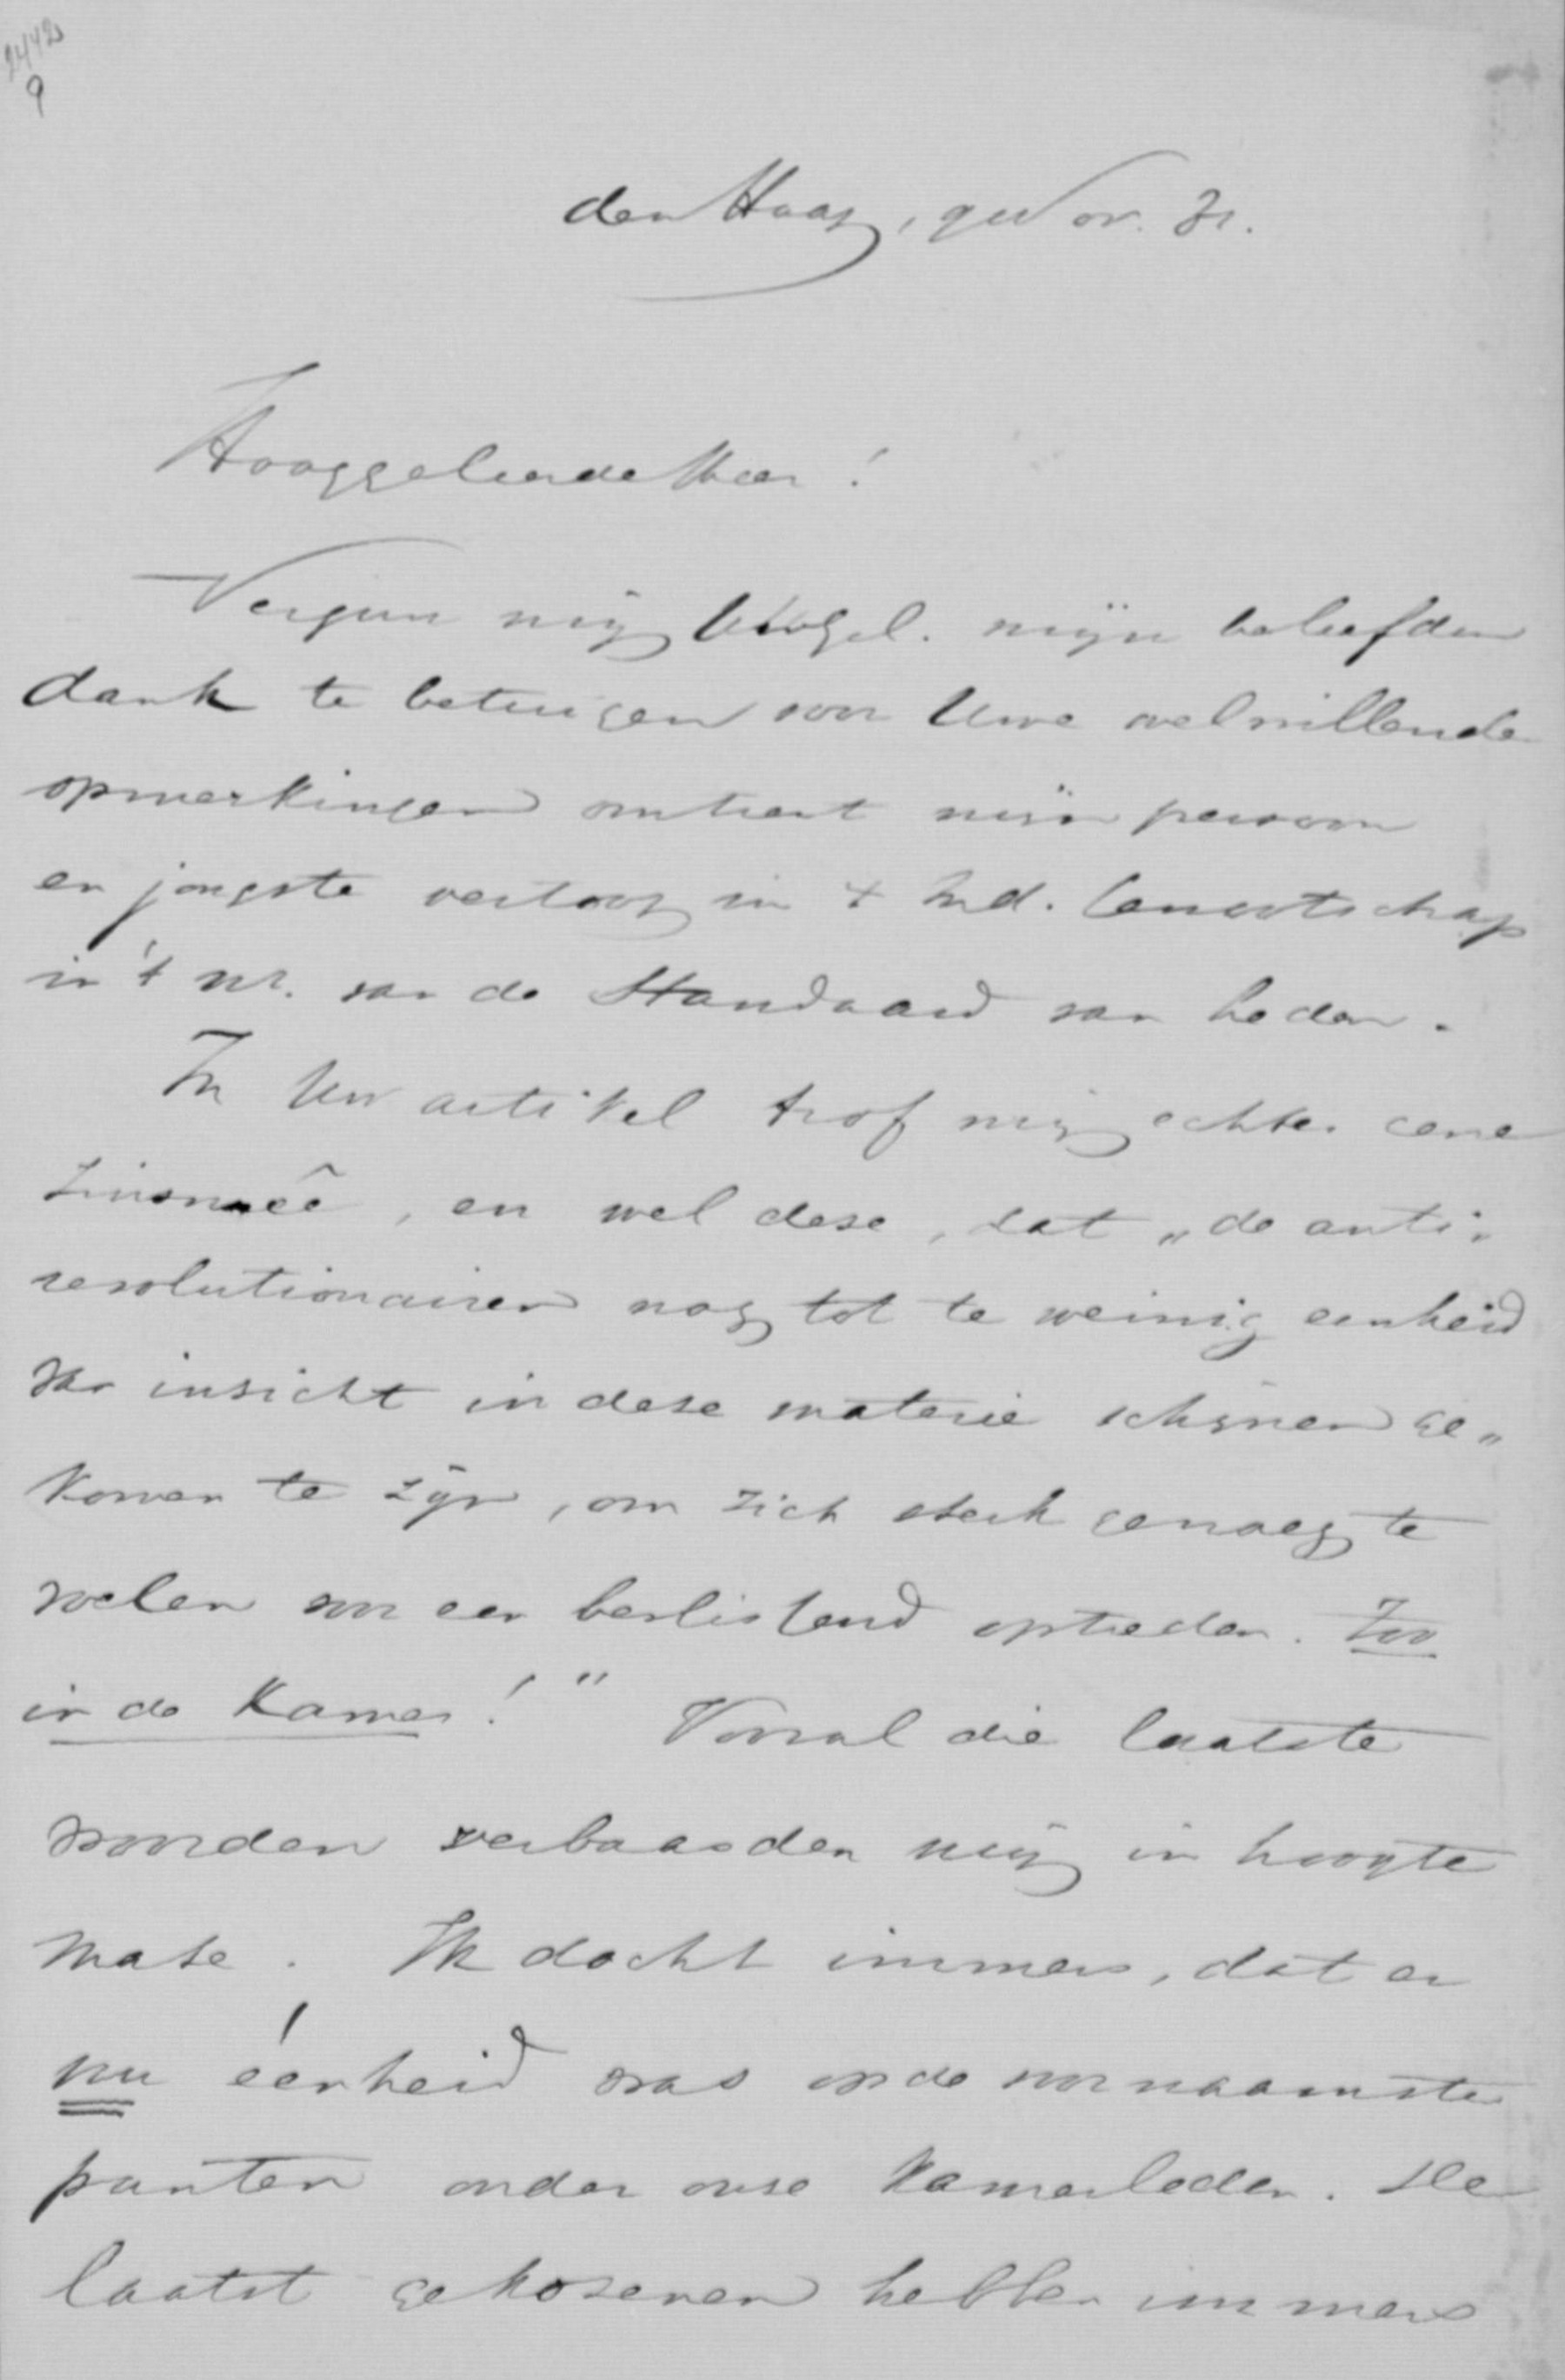 2442
9
den Haag, 9 Nov. 81.
Hooggeleerde Heer!
Vergun mij UHGel. mijn beleefden
dank te betuigen voor Uwe welwillende
opmerkingen omtrent mijn persoon
en jongste vertoog in 't Ind. Genootschap
in 't nr. van de Standaard van heden.
In Uw artikel trof mij echter eene
zinsneê, en wel deze, dat „de anti-
revolutionairen nog tot te weinig eenheid
van inzicht in deze materie schijnen ge„
komen te zijn, om zich sterk genoeg te
voelen voor een beslissend optreden. Zoo
in de Kamer!" Vooral die laatste
woorden verbaasden mij in hoogste
mate. Ik dacht immers, dat er
nu éénheid was op de voornaamste
punten onder onze Kamerleden. De
laatst gekozenen hebben immers